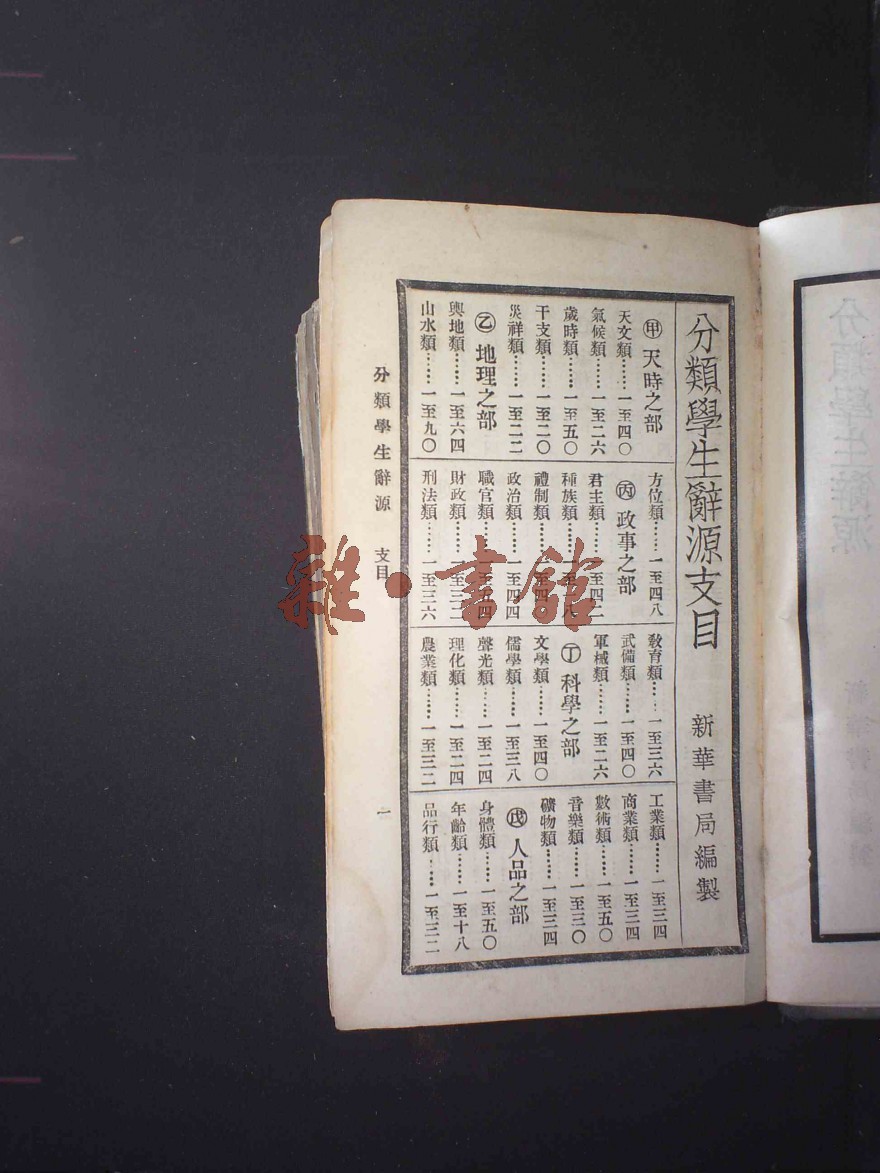 分類學生辭源支目
新華書局編製
甲 天時之部
天文類……一至四〇
氣候類……一至二六
歲時類……一至五〇
干支類……一至二〇
災祥類……一至二二
乙 地理之部
輿地類……一至六四
山水類……一至九〇
方位類……一至四八
丙 政事之部
君主類……一至四二
種族類……一至一八
禮制類……一至四〇
政治類……一至四四
職官類……一至五四
財政類……一至三二
刑法類……一至三六
教育類……一至三六
武備類……一至四〇
軍械類……一至二六
丁 科學之部
文學類……一至四〇
儒學類……一至三八
聲光類……一至二四
理化類……一至二四
農業類……一至三二
工業類……一至三四
商業類……一至三四
數術類……一至五〇
音樂類……一至三〇
礦物類……一至三四
戊 人品之部
身體類……一至五〇
年齡類……一至十八
品行類……一至三二
分類學生辭源 支目
一
雜·書館